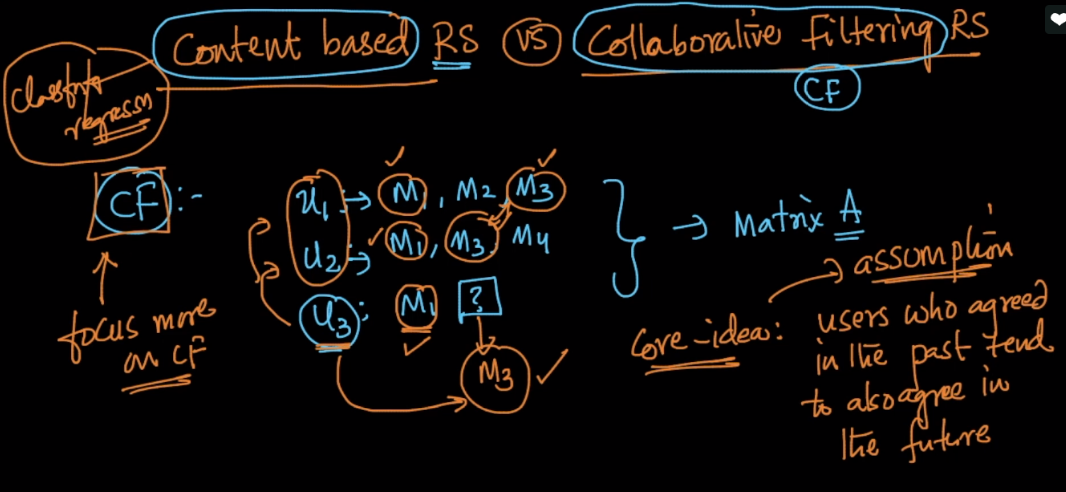 Content based RS VS Collaborative Filtering RS
CF
regression
CF :-
U1 → M1, M2, M3
U2 → M1, M3, M4
U3 : M1 ?
M3
→ Matrix A
focus more
on CF
assumption
Core-idea: users who agreed
in the past tend
to also agree in
the future